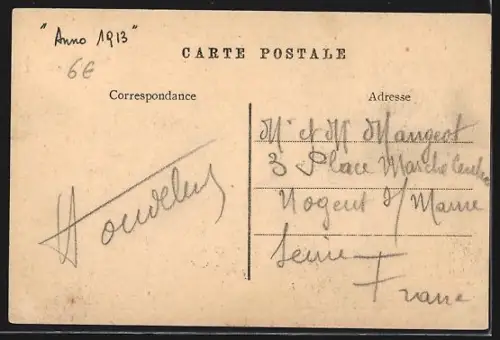 "Anno 1913"
6€
CARTE POSTALE
Correspondance
Adresse
Mr et Mme Mangeot
3 Place Marché Central
Nogent s/ Marne
Seine
France